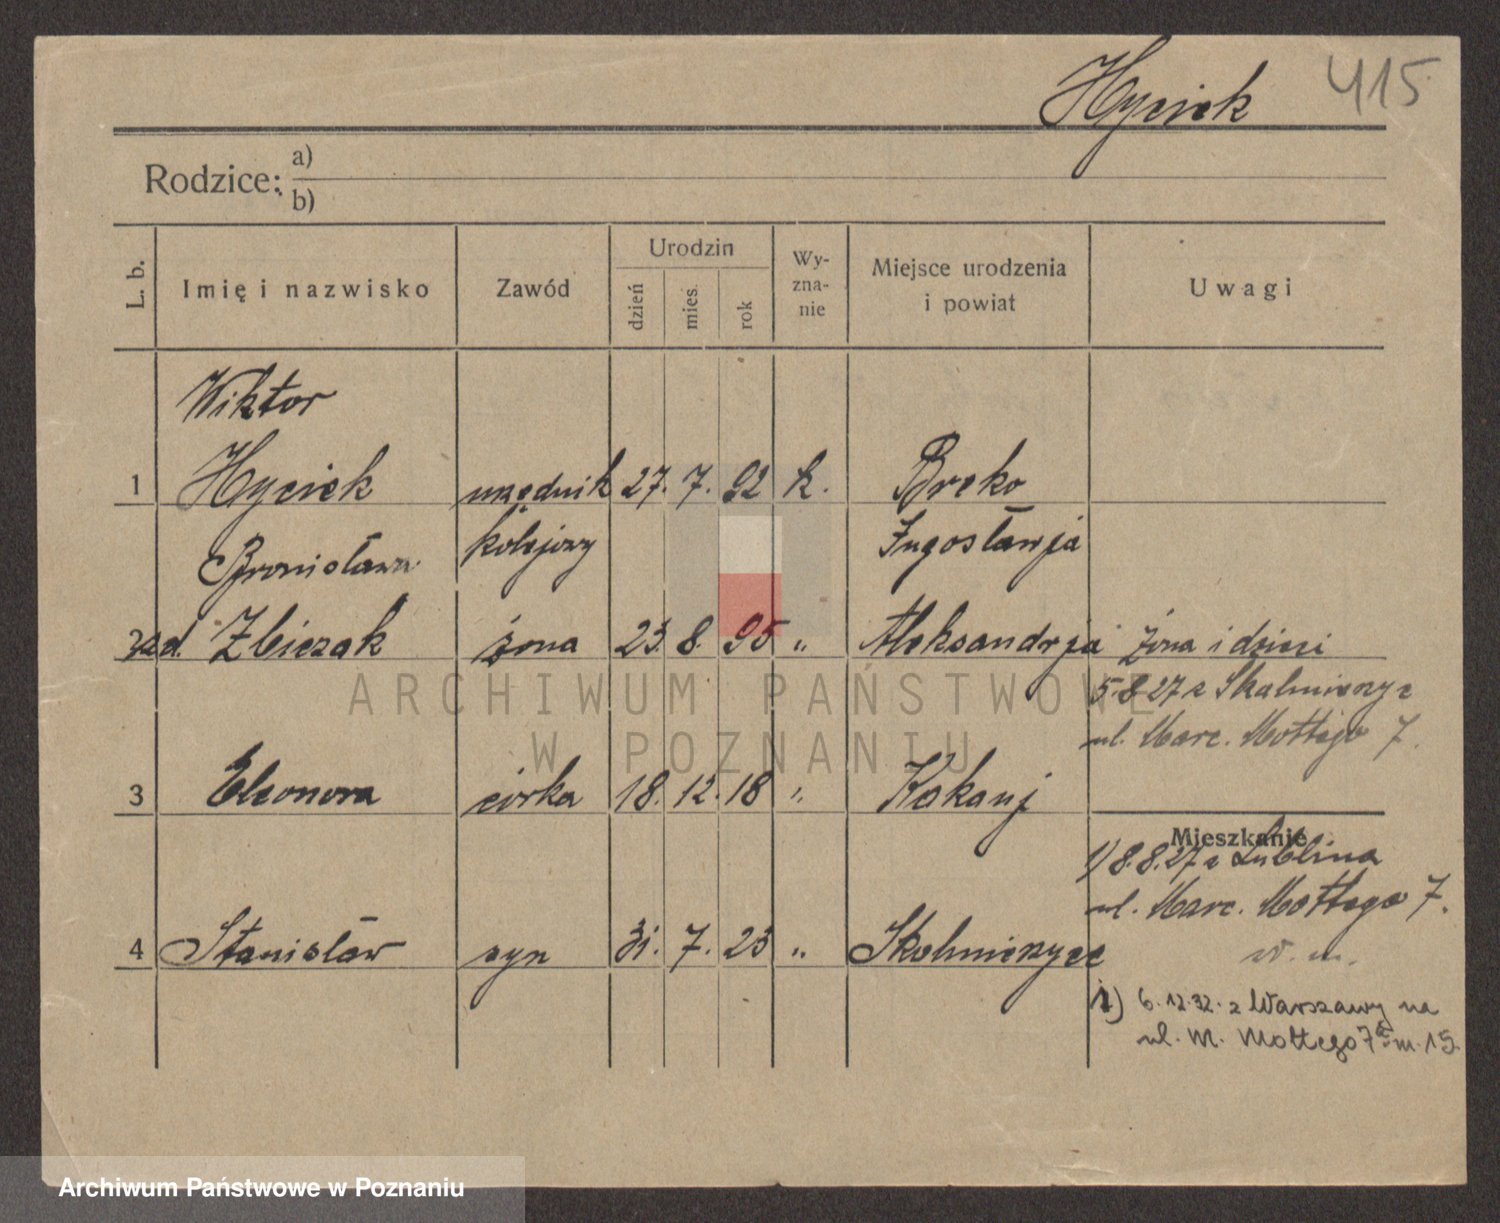 Hyciek 415
Rodzice: a)
b)
L. b. Imię i nazwisko Zawód Urodzin dzień mies. rok Wy-zna-nie Miejsce urodzenia i powiat Uwagi
Wiktor
1 Hyciek urzędnik 27. 7. 92 k. Brcko
Bronisława kolejowy Jugosławja
2 zd. Zbiczak żona 23. 8. 95 " Aleksandrja żona i dzieci
5.8.27 z Skalmierzyc
ul. Marc. Mottego 7.
3 Eleonora córka 18. 12. 18 " Kakanj
Mieszkanie
1) 8.8.27 z Lublina
ul. Marc. Mottego 7.
4 Stanisław syn 31. 7. 23 " Skalmierzyce
w. m.
1) 6.12.32. z Warszawy na
ul. M. Mottego 7a m. 15.
ARCHIWUM PAŃSTWOWE
W POZNANIU
Archiwum Państwowe w Poznaniu